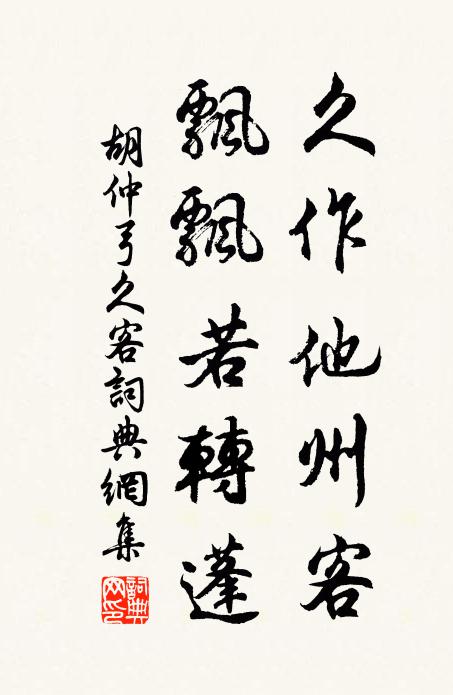 久作他州客
飄飄若轉蓬
胡仲弓久客詞典網集
詞典网印